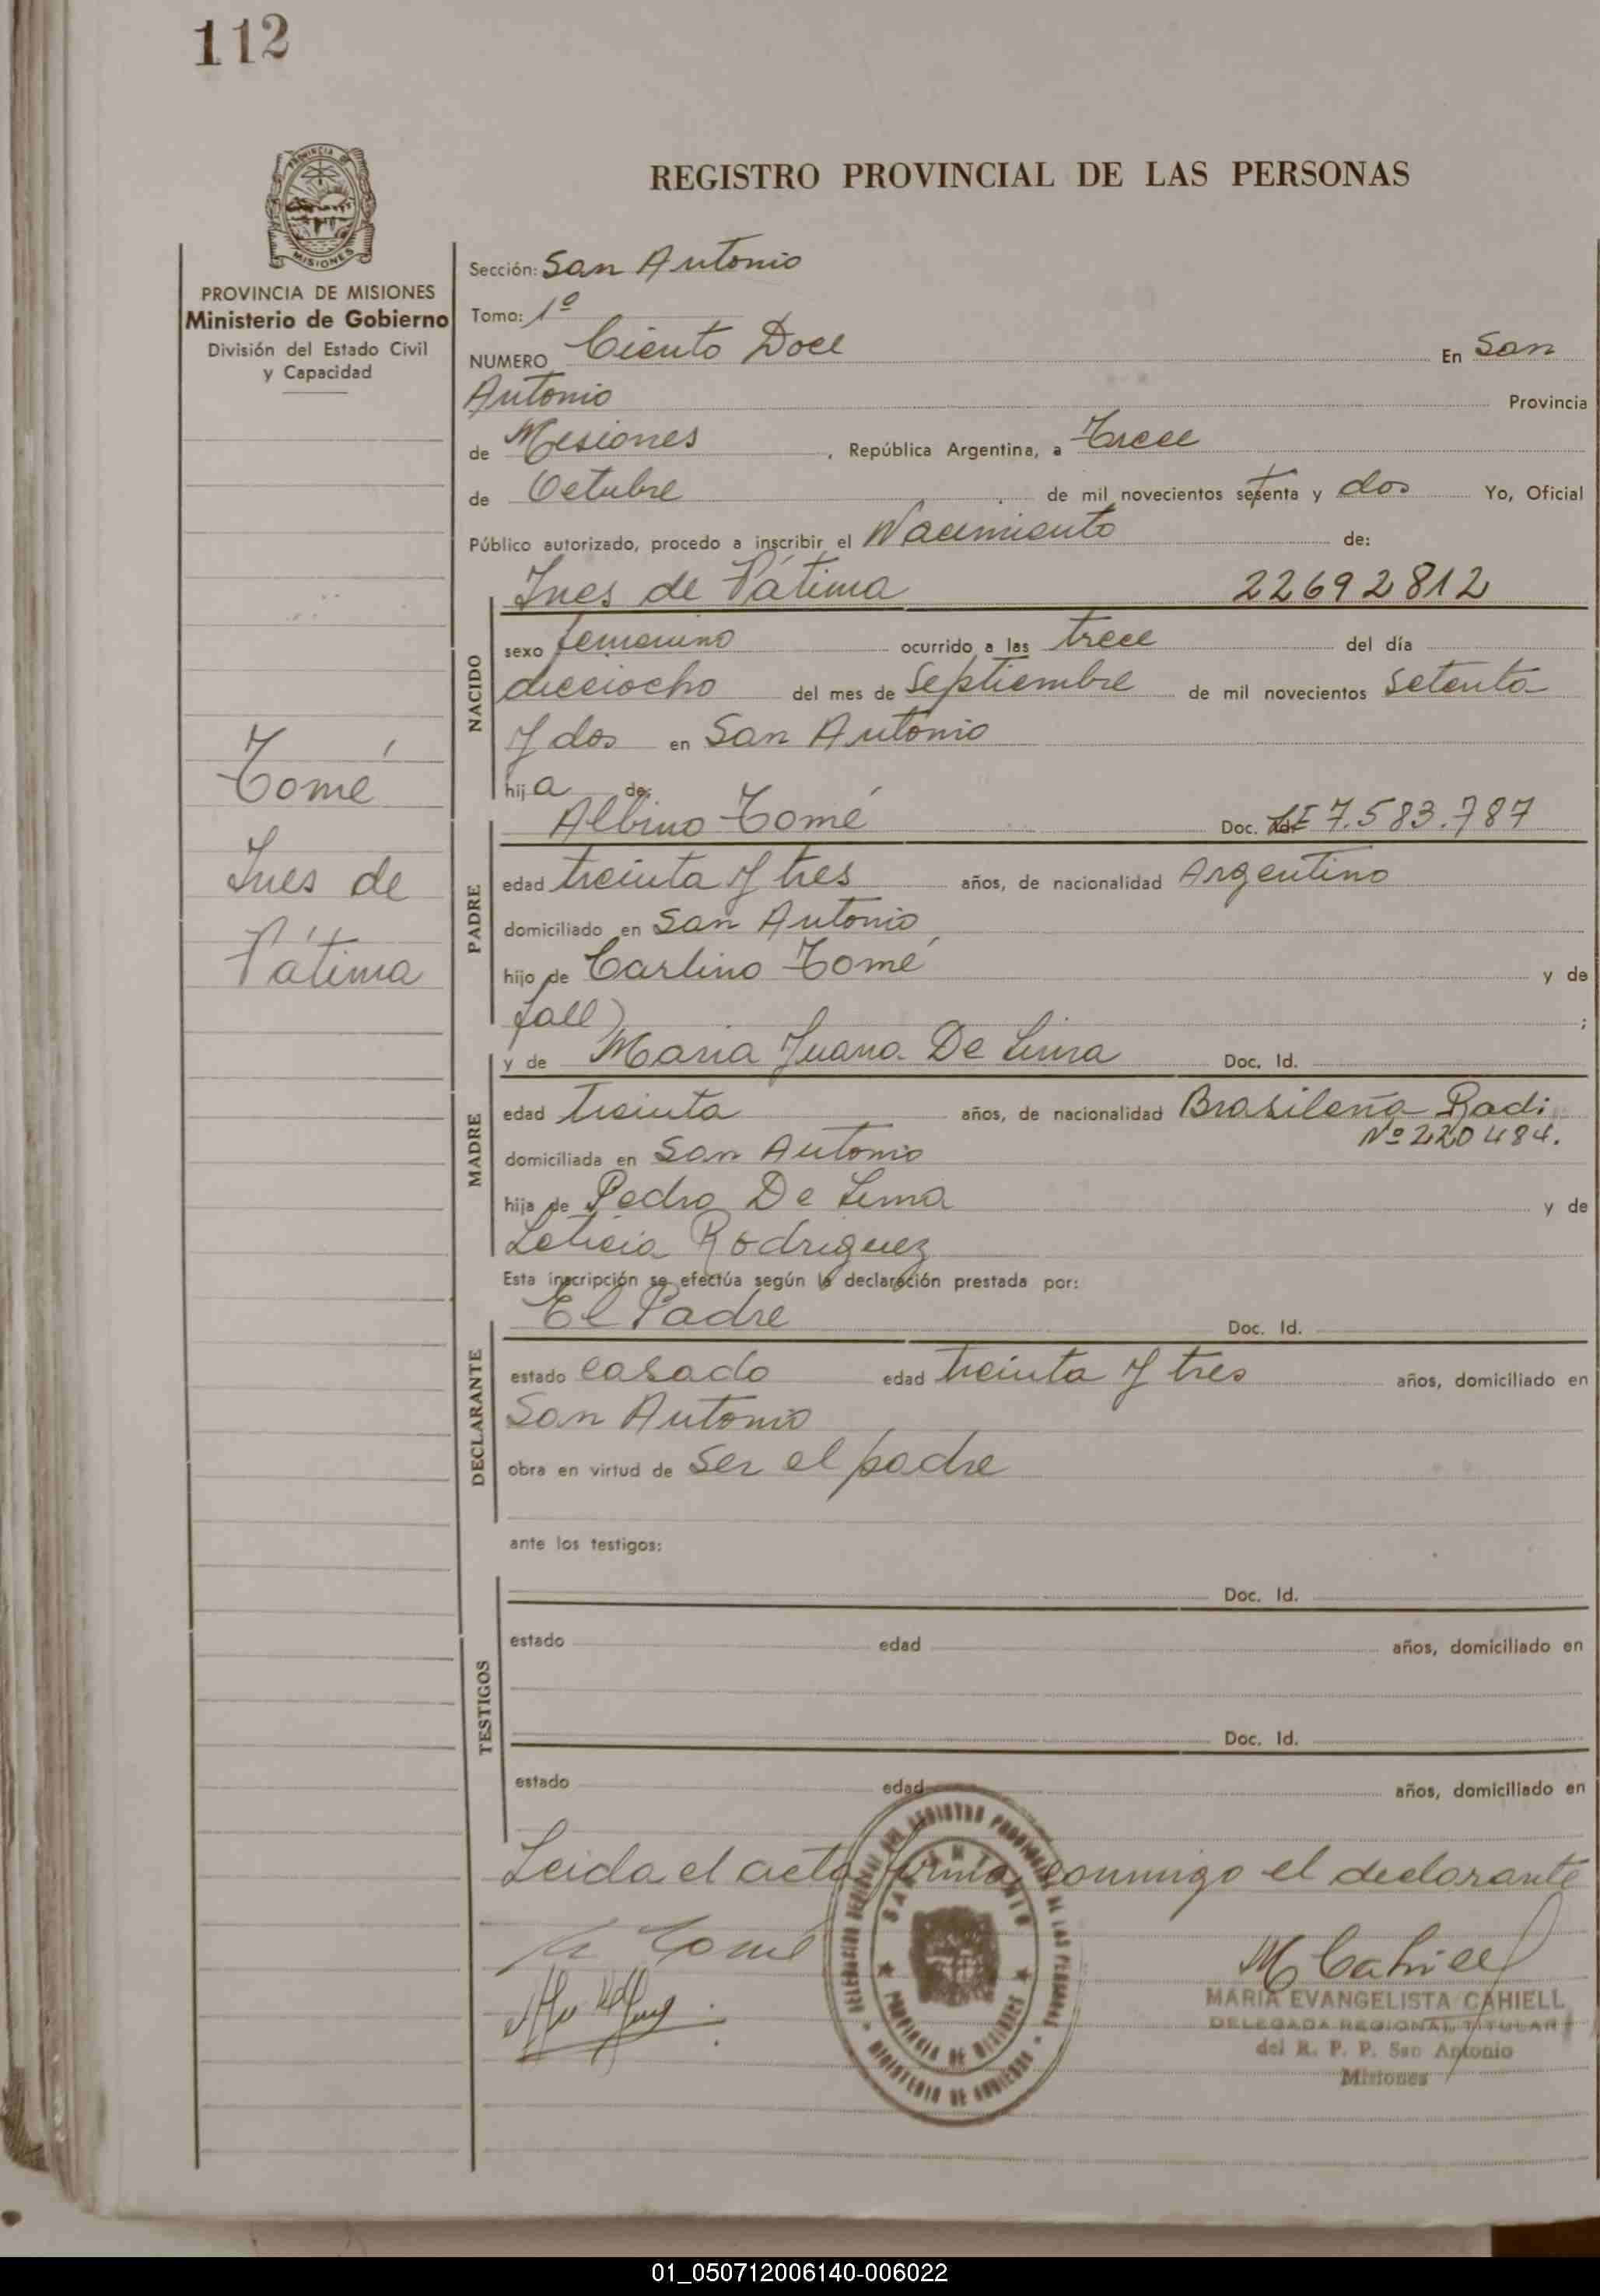 112
PROVINCIA DE
MISIONES
PROVINCIA DE MISIONES
Ministerio de Gobierno
División del Estado Civil
y Capacidad
REGISTRO PROVINCIAL DE LAS PERSONAS
Sección: San Antonio
Tomo: 1º
NUMERO Ciento Doce En San
Antonio Provincia
de Misiones, República Argentina, a Trece
de Octubre de mil novecientos setenta y dos Yo, Oficial
Público autorizado, procedo a inscribir el Nacimiento de:
Ines de Fátima 22692812
NACIDO
sexo femenino ocurrido a las trece del día
dieciocho del mes de Septiembre de mil novecientos setenta
y dos en San Antonio
hija de:
Tomé
Ines de
Fátima
PADRE
Albino Tomé Doc. LE 7.583.787
edad treinta y tres años, de nacionalidad Argentino
domiciliado en San Antonio
hijo de Carlino Tomé y de
fall) ;
MADRE
y de Maria Juana De Lima Doc. Id.
edad treinta años, de nacionalidad Brasileña Radi
Nº 220484.
domiciliada en San Antonio
hija de Pedro De Lima y de
Leticia Rodriguez
Esta inscripción se efectúa según la declaración prestada por:
DECLARANTE
El Padre Doc. Id.
estado casado edad treinta y tres años, domiciliado en
San Antonio
obra en virtud de ser el padre
ante los testigos:
TESTIGOS
Doc. Id.
estado edad años, domiciliado en
Doc. Id.
estado edad años, domiciliado en
Leida el acta firma conmigo el declarante
Tomé
M Cahiell
MARIA EVANGELISTA CAHIELL
DELEGADA REGIONAL TITULAR
del R. P. P. San Antonio
Misiones
DELEGACION REGIONAL DEL REGISTRO PROVINCIAL DE LAS PERSONAS
SAN ANTONIO
PROVINCIA DE MISIONES
MINISTERIO DE GOBIERNO
01_050712006140-006022